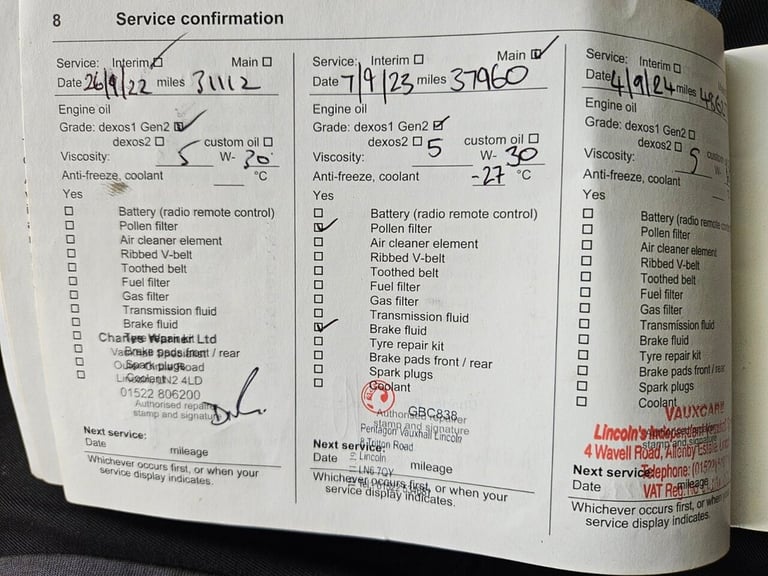 8 Service confirmation
Service: Interim Main
Date 26/9/22 miles 31112
Engine oil
Grade: dexos1 Gen2
dexos2 custom oil
Viscosity: 5 W- 30
Anti-freeze, coolant °C
Yes
Battery (radio remote control)
Pollen filter
Air cleaner element
Ribbed V-belt
Toothed belt
Fuel filter
Gas filter
Transmission fluid
Brake fluid
Tyre repair kit
Charles Warner Ltd
Brake pads front / rear
Spark plugs
Road
Coolant
LN2 4LD
01522 806200
Authorised repairer
stamp and signature
Next service:
Date mileage
Whichever occurs first, or when your
service display indicates.
Service: Interim Main
Date 7/9/23 miles 37960
Engine oil
Grade: dexos1 Gen2
dexos2 custom oil
Viscosity: 5 W- 30
Anti-freeze, coolant -27 °C
Yes
Battery (radio remote control)
Pollen filter
Air cleaner element
Ribbed V-belt
Toothed belt
Fuel filter
Gas filter
Transmission fluid
Brake fluid
Tyre repair kit
Brake pads front / rear
Spark plugs
Coolant
GBC838
Authorised repairer
stamp and signature
Pentagon Vauxhall Lincoln
Road
Next service:
Lincoln
Date mileage
LN6 7QY
Whichever occurs first, or when your
service display indicates.
Service: Interim
Date 4/9/24 miles
Engine oil
Grade: dexos1 Gen2
dexos2 custom
Viscosity: 5 W-
Anti-freeze, coolant
Yes
Battery (radio remote
Pollen filter
Air cleaner element
Ribbed V-belt
Toothed belt
Fuel filter
Gas filter
Transmission fluid
Brake fluid
Tyre repair kit
Brake pads front / rear
Spark plugs
Coolant
Lincoln's
stamp and signature
4 Wavell Road, Allenby
Next service:
Telephone:
Date mileage
VAT Reg
Whichever occurs first, or when your
service display indicates.